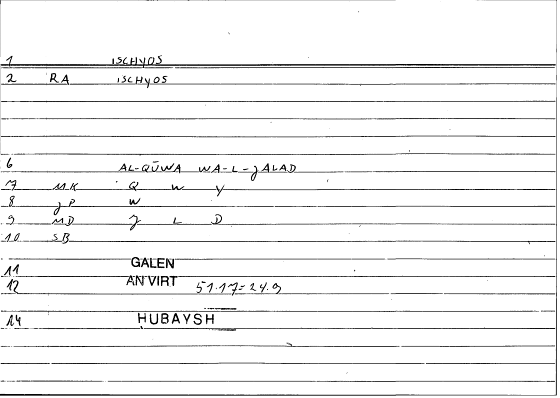 1 ISCHYOS
2 RA ISCHYOS
6 AL-QŪWA WA-L-JALAD
7 MK Q W Y
8 JP W
9 MD J L D
10 SB
11 GALEN
12 AN VIRT 51.17=24.9
14 HUBAYSH